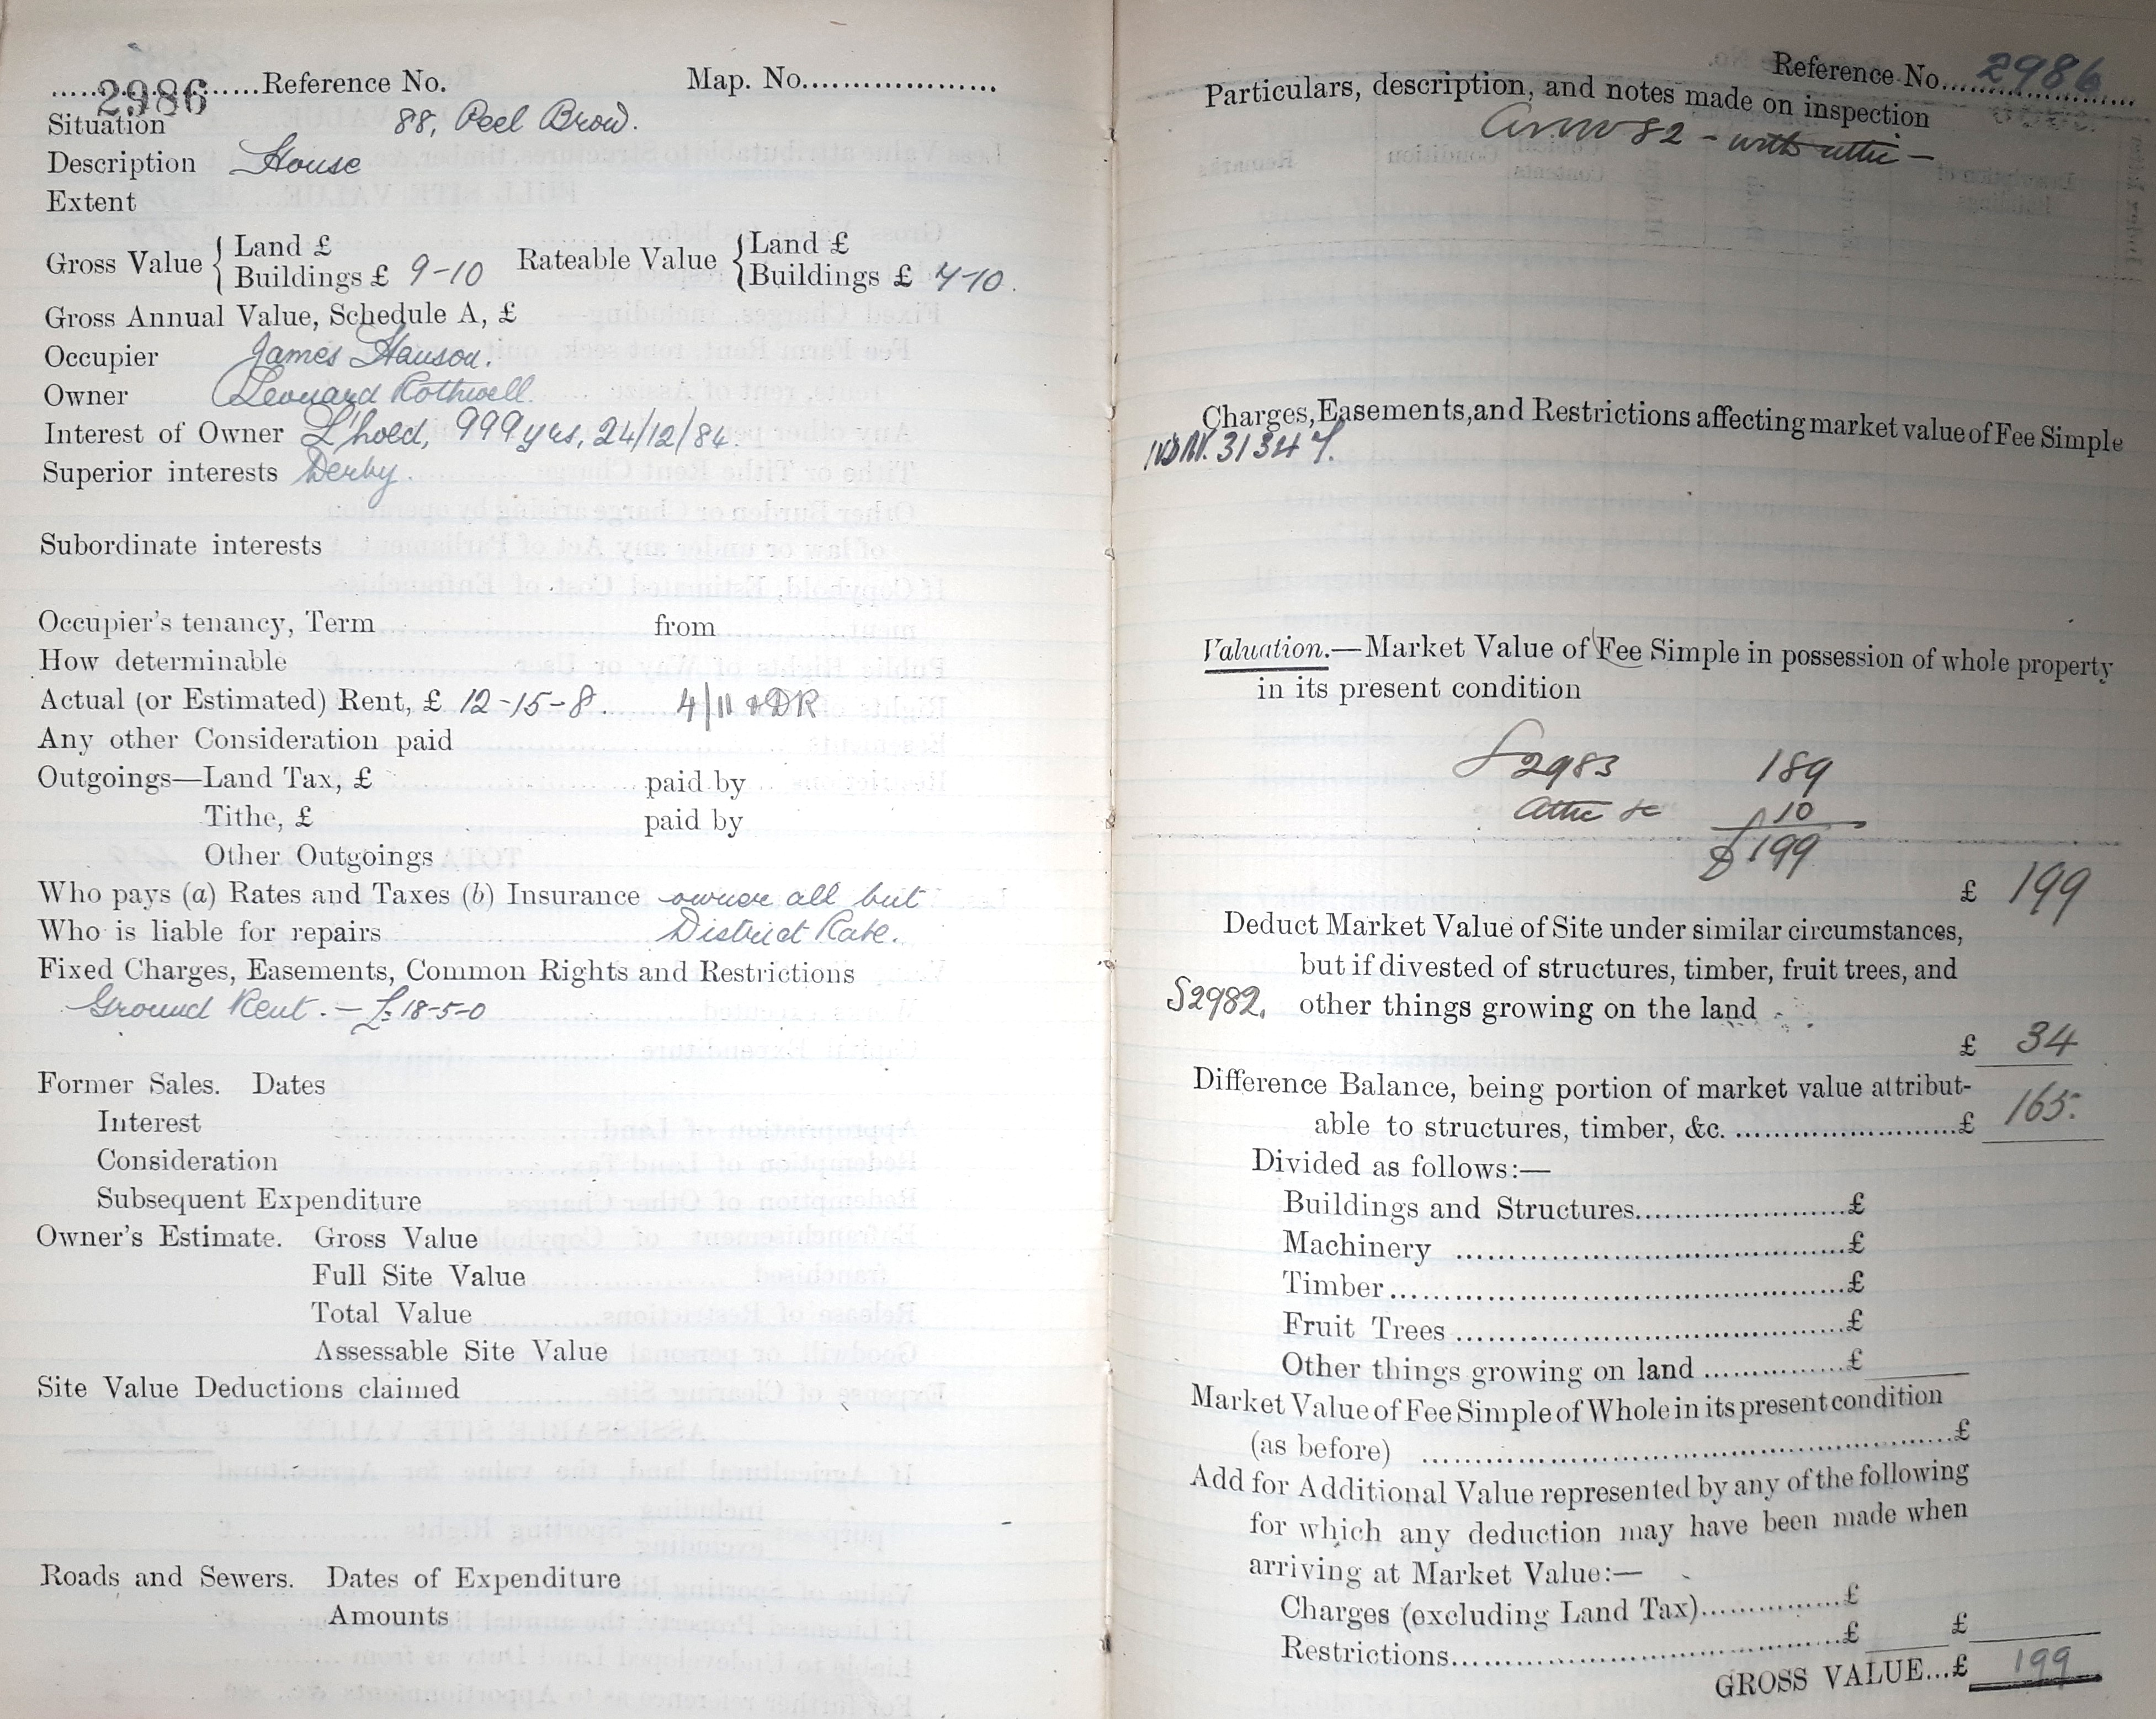 2986 Reference No. Map. No.
Situation 88, Peel Brow.
Description House
Extent
Gross Value { Land £
Buildings £ 9-10
Rateable Value { Land £
Buildings £ 7-10.
Gross Annual Value, Schedule A, £
Occupier James Hanson.
Owner Leonard Rothwell.
Interest of Owner L'hold, 999 yrs, 24/12/84.
Superior interests Derby.
Subordinate interests
Occupier's tenancy, Term from
How determinable
Actual (or Estimated) Rent, £ 12-15-8. 4/11 & DR
Any other Consideration paid
Outgoings—Land Tax, £ paid by
Tithe, £ paid by
Other Outgoings
Who pays (a) Rates and Taxes (b) Insurance owner all but
Who is liable for repairs District Rate.
Fixed Charges, Easements, Common Rights and Restrictions
Ground Rent. — £18-5-0
Former Sales. Dates
Interest
Consideration
Subsequent Expenditure
Owner's Estimate. Gross Value
Full Site Value
Total Value
Assessable Site Value
Site Value Deductions claimed
Roads and Sewers. Dates of Expenditure
Amounts
Reference No. 2986
Particulars, description, and notes made on inspection
82 - with attic -
Charges, Easements, and Restrictions affecting market value of Fee Simple
31347.
Valuation.—Market Value of Fee Simple in possession of whole property
in its present condition
S2983 189
Attic &c 10
£199
£ 199
Deduct Market Value of Site under similar circumstances,
but if divested of structures, timber, fruit trees, and
S2982. other things growing on the land
£ 34
Difference Balance, being portion of market value attribut-
able to structures, timber, &c. £ 165.
Divided as follows:—
Buildings and Structures £
Machinery £
Timber £
Fruit Trees £
Other things growing on land £
Market Value of Fee Simple of Whole in its present condition
(as before) £
Add for Additional Value represented by any of the following
for which any deduction may have been made when
arriving at Market Value:—
Charges (excluding Land Tax) £
Restrictions £ £
GROSS VALUE...£ 199